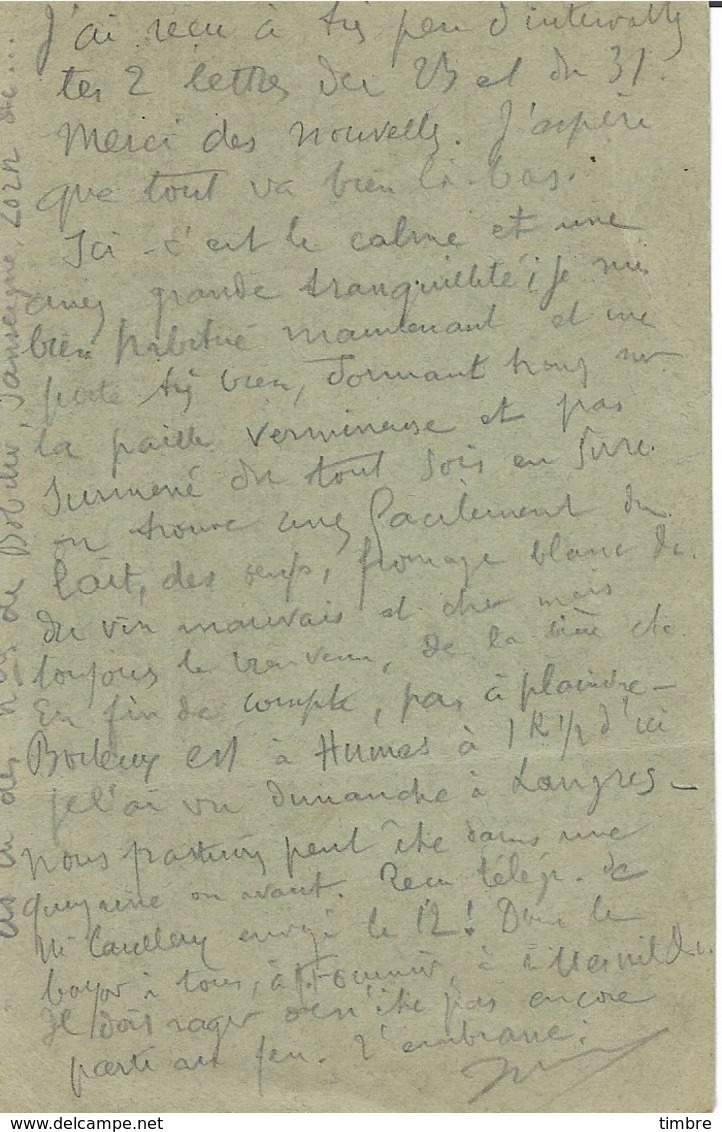 J'ai reçu à très peu d'intervalle
tes 2 lettres du 23 et du 31.
Merci des nouvelles. J'espère
que tout va bien là-bas.
Ici c'est le calme et une
assez grande tranquillité; je suis
bien habitué maintenant et me
porte très bien, dormant tous sur
la paille vermineuse et pas
surmené du tout sois en sûre.
on trouve assez facilement du
lait, des œufs, fromage blanc
du vin mauvais et cher mais
toujours le bienvenu, de la bière etc
En fin de compte, pas à plaindre -
est à Humes à 1 K 1/2 d'ici
je l'ai vu dimanche à Langres -
nous partirons peut être dans une
quinzaine ou avant. Reçu télég. de
Mr envoyé le 12! Donne le
bonjour à tous, à
Il doit rager de n'être pas encore
parti au feu. t'embrasse.
as tu des de
delcampe.net
timbre